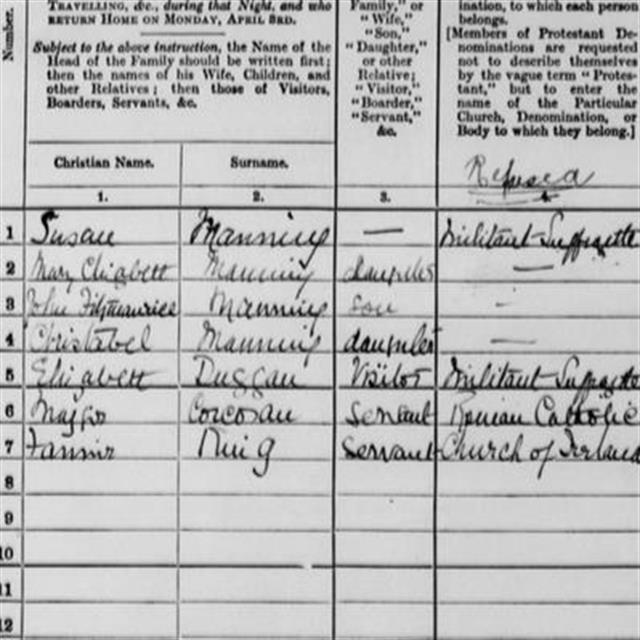 Number.
TRAVELLING, &c., during that Night, and who
RETURN HOME ON MONDAY, APRIL 3RD.
Subject to the above instruction, the Name of the
Head of the Family should be written first;
then the names of his Wife, Children, and
other Relatives; then those of Visitors,
Boarders, Servants, &c.
Family," or
"Wife,"
"Son,"
"Daughter,"
or other
Relative;
"Visitor,"
"Boarder,"
"Servant,"
&c.
ination, to which each person
belongs.
[Members of Protestant De-
nominations are requested
not to describe themselves
by the vague term "Protes-
tant," but to enter the
name of the Particular
Church, Denomination, or
Body to which they belong.]
Christian Name. Surname.
Refused
1. 2. 3. 4.
1 Susan Manning — Militant Suffragette
2 Mary Elizabeth Manning daughter —
3 John Fitzmaurice Manning son -
4 Christabel Manning daughter —
5 Elizabeth Duggan Visitor Militant Suffragette
6 Corcoran Servant Roman Catholic
7 Fannie King Servant Church of Ireland
8
9
10
11
12